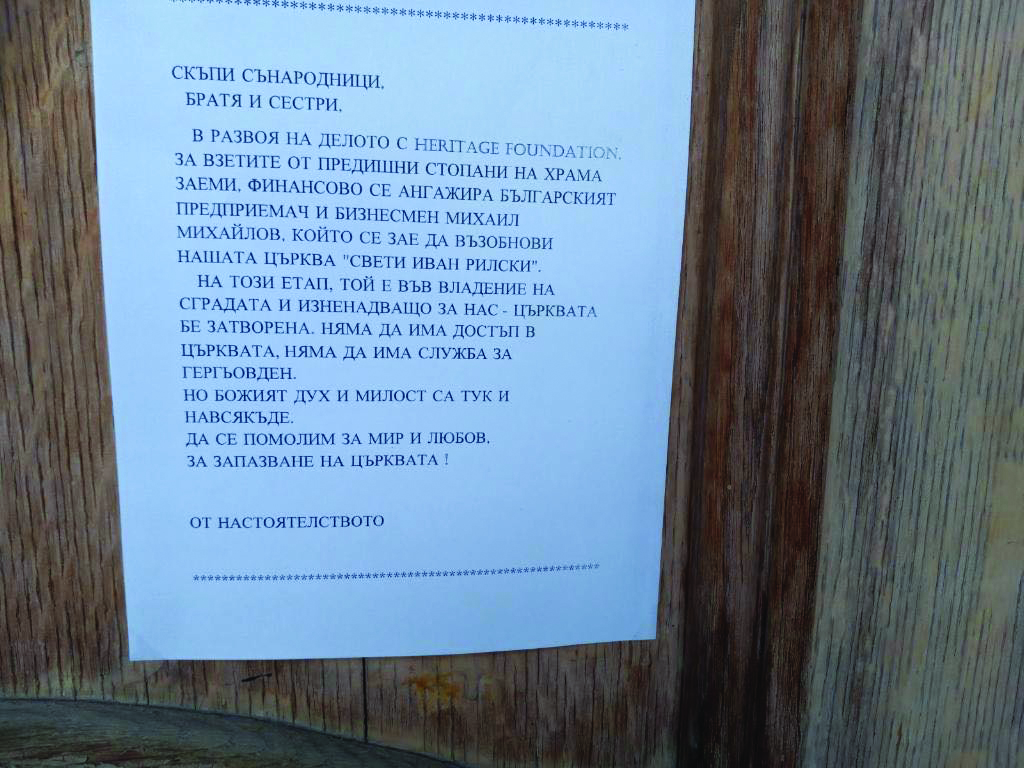 ****************************************************
СКЪПИ СЪНАРОДНИЦИ,
БРАТЯ И СЕСТРИ,
В РАЗВОЯ НА ДЕЛОТО С HERITAGE FOUNDATION,
ЗА ВЗЕТИТЕ ОТ ПРЕДИШНИ СТОПАНИ НА ХРАМА
ЗАЕМИ, ФИНАНСОВО СЕ АНГАЖИРА БЪЛГАРСКИЯТ
ПРЕДПРИЕМАЧ И БИЗНЕСМЕН МИХАИЛ
МИХАЙЛОВ, КОЙТО СЕ ЗАЕ ДА ВЪЗОБНОВИ
НАШАТА ЦЪРКВА "СВЕТИ ИВАН РИЛСКИ".
НА ТОЗИ ЕТАП, ТОЙ Е ВЪВ ВЛАДЕНИЕ НА
СГРАДАТА И ИЗНЕНАДВАЩО ЗА НАС - ЦЪРКВАТА
БЕ ЗАТВОРЕНА. НЯМА ДА ИМА ДОСТЪП В
ЦЪРКВАТА, НЯМА ДА ИМА СЛУЖБА ЗА
ГЕРГЬОВДЕН.
НО БОЖИЯТ ДУХ И МИЛОСТ СА ТУК И
НАВСЯКЪДЕ.
ДА СЕ ПОМОЛИМ ЗА МИР И ЛЮБОВ,
ЗА ЗАПАЗВАНЕ НА ЦЪРКВАТА !
ОТ НАСТОЯТЕЛСТВОТО
****************************************************